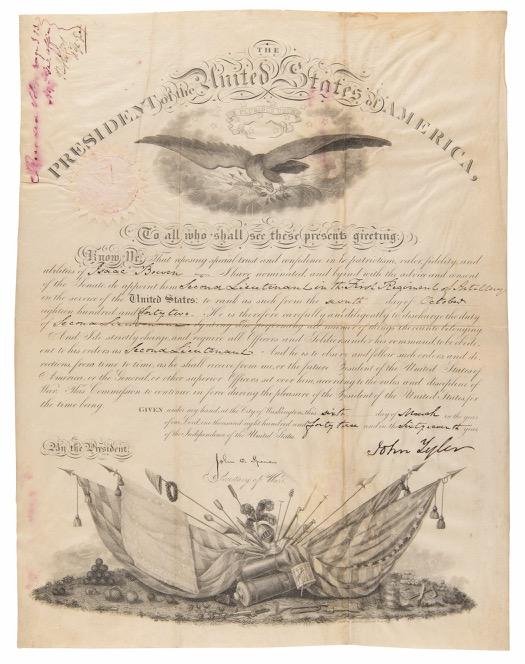 THE
PRESIDENT of the United States of AMERICA,
To all who shall see these presents greeting:
Know Ye, That reposing special trust and confidence in the patriotism, valor, fidelity, and
abilities of Isaac Bowen I have nominated and by and with the advice and consent
of the Senate do appoint him Second Lieutenant in the First Regiment of Artillery
in the service of the United States: to rank as such from the day of October
eighteen hundred and forty two. He is therefore carefully and diligently to discharge the duty
of Second Lieutenant by doing and performing all manner of things thereunto belonging.
And I do strictly charge, and require all Officers and Soldiers under his command to be obedi-
ent to his orders as Second Lieutenant. And he is to observe and follow such orders, and di-
rections from time to time, as he shall receive from me, or the future President of the United States of
America, or the General, or other superior Officers set over him, according to the rules and discipline of
War. This Commission to continue in force during the pleasure of the President of the United States for
the time being.
GIVEN under my hand at the City of Washington, this sixth day of March in the year
of our Lord, one thousand eight hundred and forty three and in the sixty seventh year
of the Independence of the United States.
By the President,
John Tyler
Secretary of War.